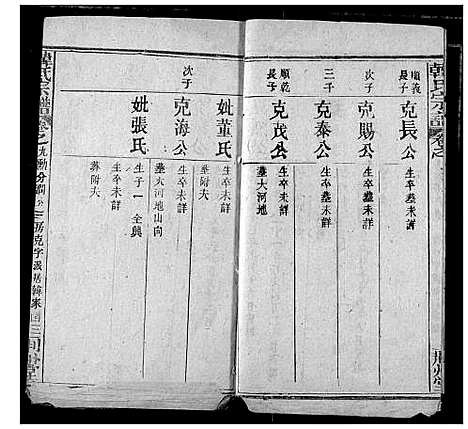 韓氏宗譜
順義
長子
克長公
生卒葬未詳
次子
克賜公
生卒葬未詳
三子
克泰公
生卒葬未詳
順乾
長子
克茂公
生卒未詳
葬大河地
妣董氏
生卒未詳
葬附夫
次子
克海公
生卒未詳
葬大河地山向
妣張氏
生卒未詳
生子一全興
葬附夫
韓氏宗譜